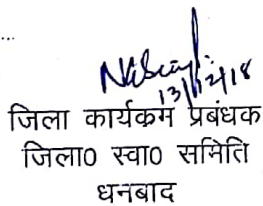 ...
13/12/18
जिला कार्यकम प्रबंधक
जिला0 स्वा0 समिति
धनबाद